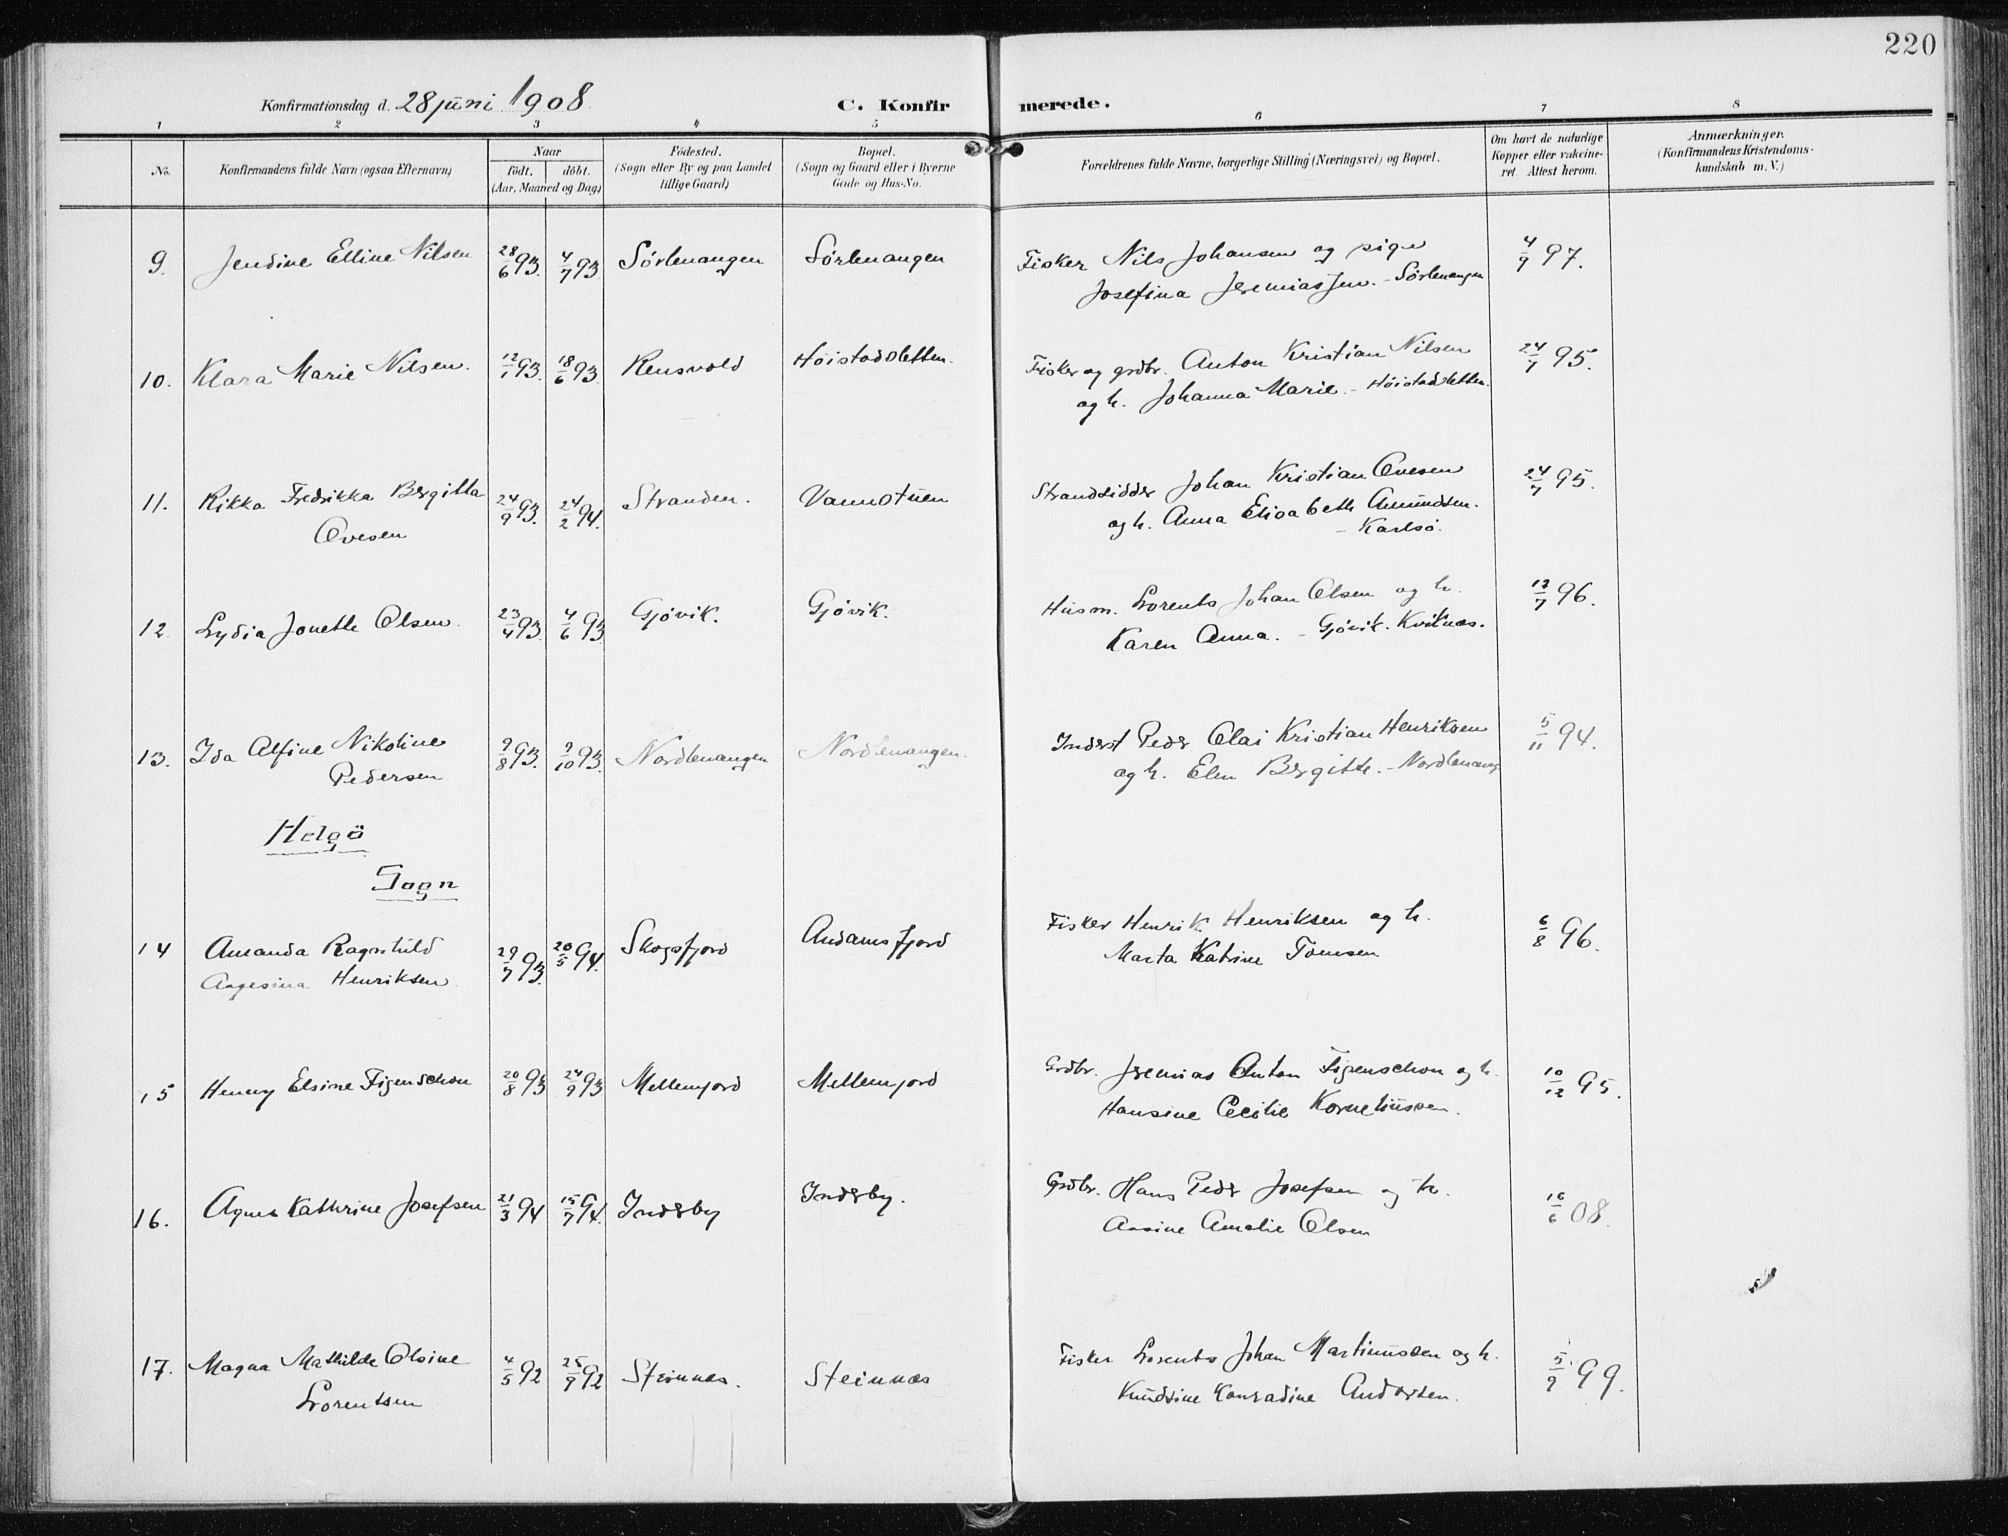 220
Konfirmationsdag d. 28 juni 1908. C. Konfirmerede.
1 2 3 4 5 6 7 8
No. Konfirmandens fulde Navn (ogsaa Efternavn) Naar født. døbt. (Aar, Maaned og Dag) Fødested. (Sogn eller By og paa Landet tillige Gaard) Bopæl. (Sogn og Gaard eller i Byerne Gade og Hus-No. Forældrenes fulde Navne, borgerlige Stilling (Næringsvei) og Bopæl. Om havt de naturlige Kopper eller vakcineret. Attest herom. Anmærkninger. (Konfirmandens Kristendomskundskab m. V.)
9. Jendine Elline Nilsen 28/6 93. 4/7 93. Sörlenangen Sörlenangen Fisker Nils Johansen og pige 4/9 97.
Josefina Jeremiassen. - Sörlenangen
10. Klara Marie Nilsen. 12/1 93. 18/6 93 Rensvold Höistadsletten. Fisker og grdbr. Anton Kristian Nilsen 24/7 95.
og h. Johanna Marie. - Höistadsletten.
11. Rikka Fredrikka Bergitta 24/9 93. 24/2 94. Stranden. Vannstuen Strandsidder Johan Kristian Ovesen 24/7 95.
Ovesen og h. Anna Elisabeth Amundsen.
- Karlsö.
12. Lydia Jonette Olsen. 23/4 93. 4/6 93 Gjövik. Gjövik. Husm. Lorents Johan Olsen og h. 17/7 96.
Karen Anna. - Gjövik. Kvitnæs.
13. Ida Alfine Nikoline 9/8 93. 9/10 93. Nordlenangen Nordlenangen. Inderst Peder Olai Kristian Henriksen 5/11 94.
Pedersen og h. Elen Bergitte. - Nordlenang
Helgö
Sogn
14 Amanda Ragnhild 29/7 93. 20/5 94. Skogsfjord Andamsfjord Fisker Henrik Henriksen og h. 6/8 96.
Aagesina Henriksen Marta Katrine Tomsen
15 Henny Elsine Figenschou 20/8 93 24/9 93 Mellemjord Mellemjord Grdbr. Jremias Anton Figenschou og h. 10/12 95.
Hansine Cecilie Korneliussen.
16. Agnes Kathrine Josefsen 21/3 94 15/7 94. Inderby Inderby. Grdbr. Hans Peder Josefsen og h. 16/6 08.
Aasine Amalie Olsen
17. Magna Mathilde Olsine 4/5 92 25/9 92 Steinnæs. Steinnæs Fisker Lorents Johan Martinussen og h. 5/9 99.
Lorentsen Knudsine Konradine Andersen.